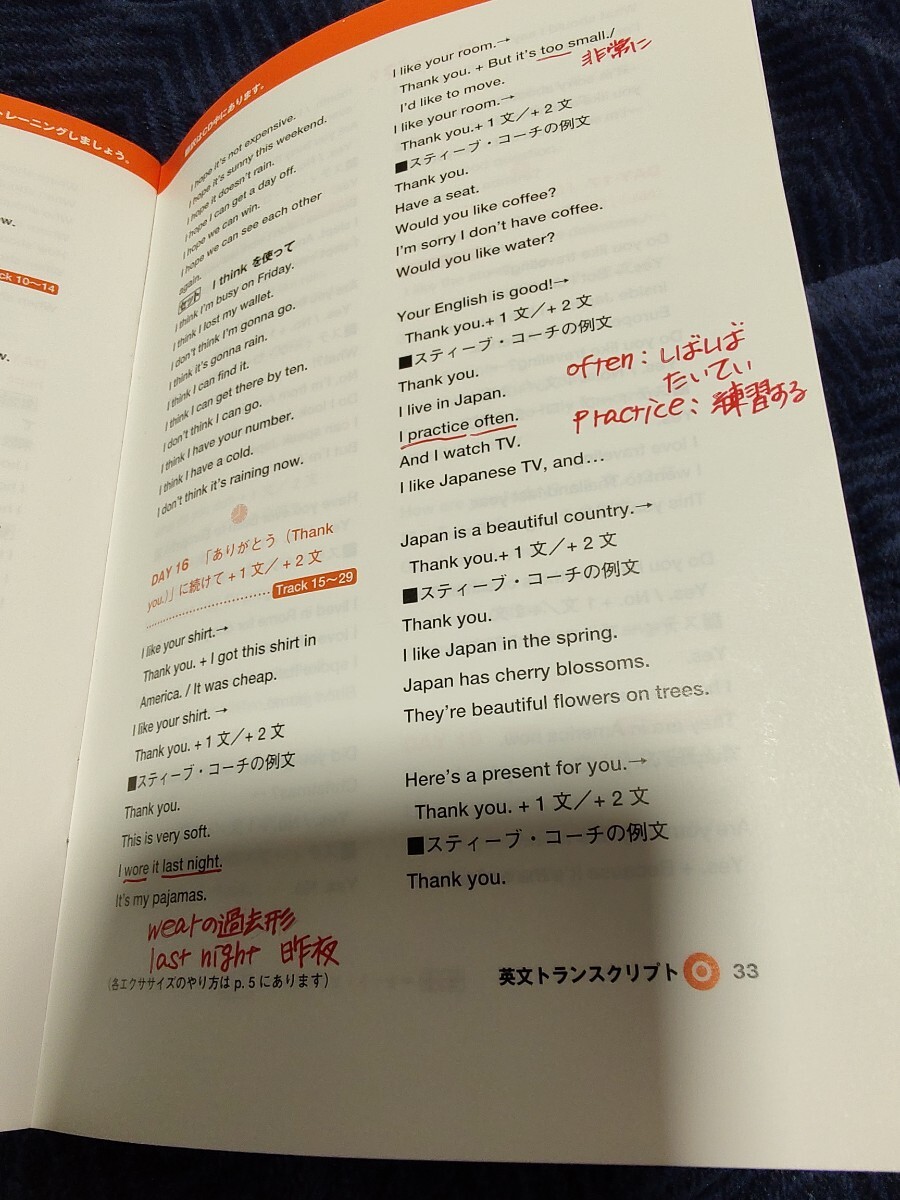 トレーニングしましょう。
w.
ck 10～14
w.
翻訳はCD中にあります。
I hope it's not expensive.
I hope it's sunny this weekend.
I hope it doesn't rain.
I hope I can get a day off.
I hope we can win.
I hope we can see each other
again.
I think を使って
I think I'm busy on Friday.
I think I lost my wallet.
I don't think I'm gonna go.
I think it's gonna rain.
I think I can find it.
I think I can get there by ten.
I don't think I can go.
I think I have your number.
I think I have a cold.
I don't think it's raining now.
DAY 16 「ありがとう（Thank
you.）」に続けて + 1 文／ + 2 文
Track 15～29
I like your shirt.→
Thank you. + I got this shirt in
America. / It was cheap.
I like your shirt. →
Thank you. + 1 文／+ 2 文
■スティーブ・コーチの例文
Thank you.
This is very soft.
I wore it last night.
It's my pajamas.
wearの過去形
last night 昨夜
（各エクササイズのやり方は p. 5 にあります）
I like your room.→
Thank you. + But it's too small./
非常に
I'd like to move.
I like your room.→
Thank you.+ 1 文／+ 2 文
■スティーブ・コーチの例文
Thank you.
Have a seat.
Would you like coffee?
I'm sorry I don't have coffee.
Would you like water?
Your English is good!→
Thank you.+ 1 文／+ 2 文
■スティーブ・コーチの例文
Thank you.
I live in Japan.
I practice often.
And I watch TV.
I like Japanese TV, and…
often : しばしば
たいてい
practice : 練習する
Japan is a beautiful country.→
Thank you.+ 1 文／+ 2 文
■スティーブ・コーチの例文
Thank you.
I like Japan in the spring.
Japan has cherry blossoms.
They're beautiful flowers on trees.
Here's a present for you.→
Thank you. + 1 文／+ 2 文
■スティーブ・コーチの例文
Thank you.
英文トランスクリプト 33